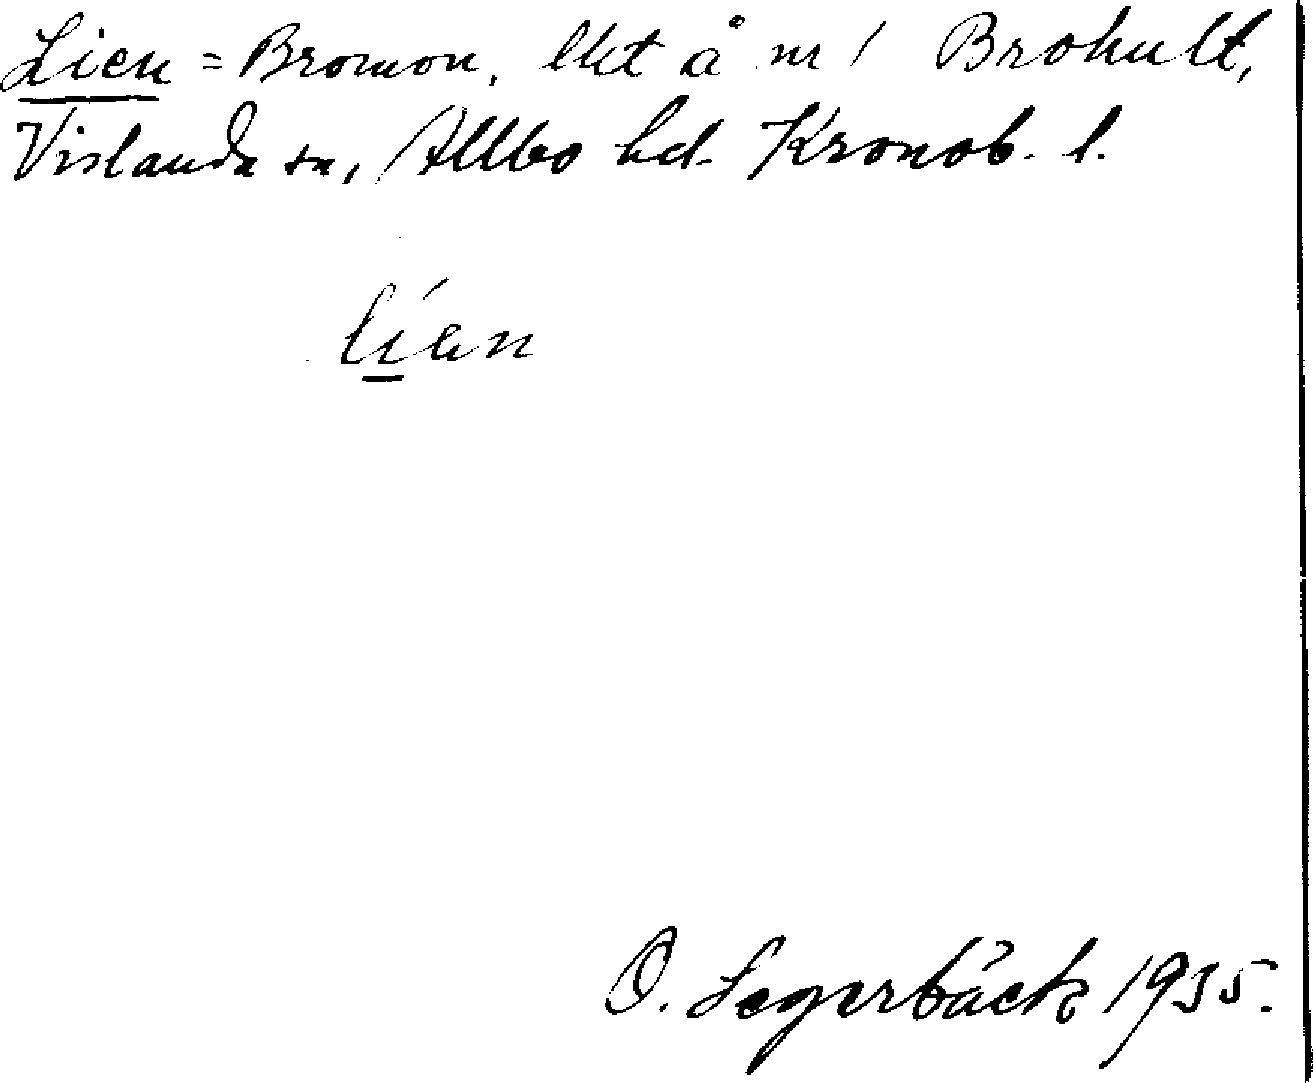 Lien = Bromon, lht å nr 1 Brohult,
Vislanda sn, Allbo hd. Kronob. l.
lían
O. Segerbäck 1935.